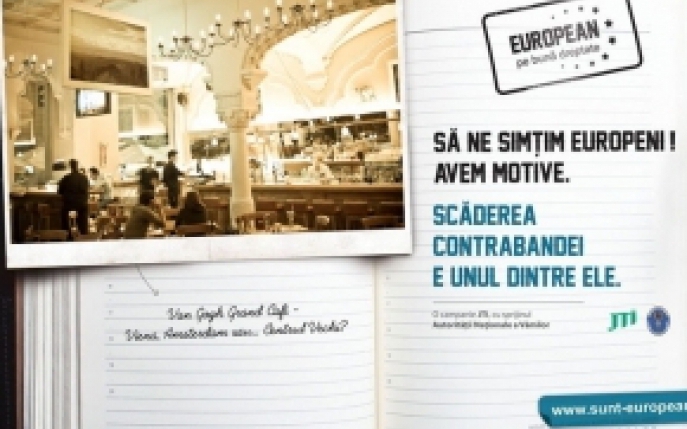 EUROPEAN
pe bună dreptate
SĂ NE SIMȚIM EUROPENI !
AVEM MOTIVE.
SCĂDEREA
CONTRABANDEI
E UNUL DINTRE ELE.
O campanie JTI, cu sprijinul
Autorității Naționale a Vămilor
JTI
Van Gogh Grand Café -
Viena, Amsterdam sau... Centrul Vechi?
www.sunt-european